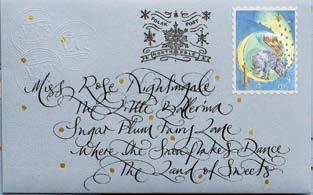 POLAR POST
NORTH POLE
Miss Rose Nightingale
The Little Ballerina
Sugar Plum Fairy Lane
Where the Snowflakes Dance
The Land of Sweets